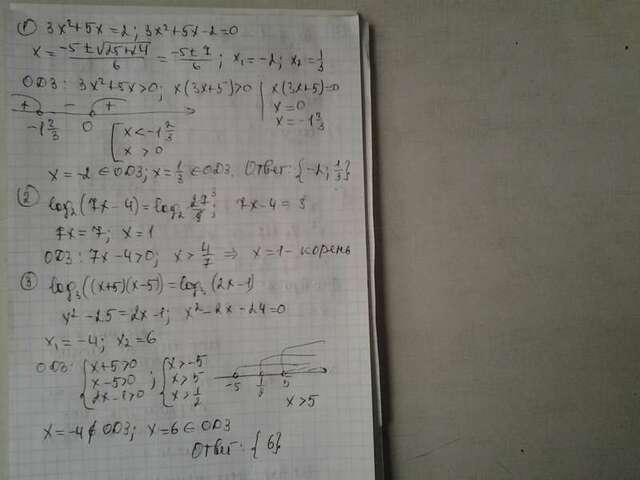 ① 3x²+5x=2; 3x²+5x-2=0
x = (-5±√(25+24))/6 = (-5±7)/6; x₁=-2; x₂=1/3
ОДЗ: 3x²+5x>0; x(3x+5)>0 | x(3x+5)=0
x=0
x=-1 2/3
+ - +
-1 2/3 0 [x<-1 2/3
x>0
x=-2 ∈ ОДЗ; x=1/3 ∈ ОДЗ. Ответ: {-2; 1/3}
② log₂(7x-4)=log₂ 27/9; 7x-4=3
7x=7; x=1
ОДЗ: 7x-4>0; x>4/7 ⇒ x=1- корень
③ log₃((x+5)(x-5))=log₃(2x-1)
x²-25=2x-1; x²-2x-24=0
x₁=-4; x₂=6
ОДЗ: {x+5>0 ; {x>-5
x-5>0 x>5
2x-1>0 x>1/2
-5 1/2 5
x>5
x=-4 ∉ ОДЗ; x=6 ∈ ОДЗ
Ответ: {6}